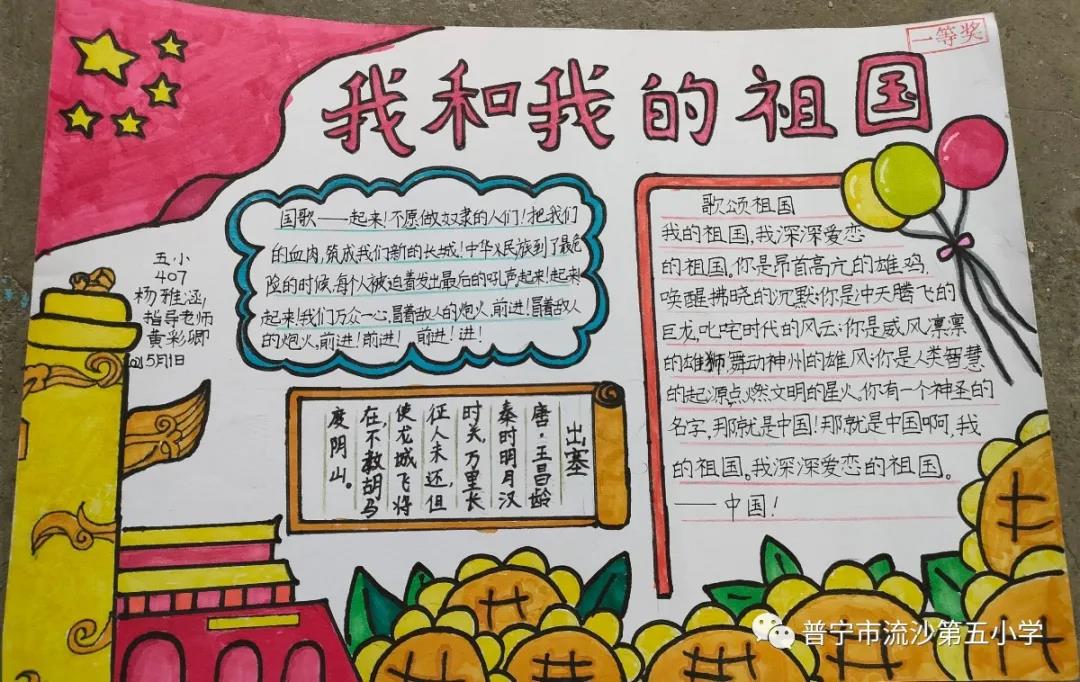 一等奖
我和我的祖国
五小
407
杨雅涵
指导老师
黄彩卿
5月1日
国歌——起来!不愿做奴隶的人们!把我们
的血肉,筑成我们新的长城!中华人民族到了最危
险的时候,每个人被迫着发出最后的吼声。起来!起来
起来!我们万众一心,冒着敌人的炮火,前进!冒着敌人
的炮火,前进!前进!前进!进!
出塞
唐·王昌龄
秦时明月汉
时关,万里长
征人未还,但
使龙城飞将
在,不教胡马
度阴山。
歌颂祖国
我的祖国,我深深爱恋
的祖国。你是昂首高亢的雄鸡,
唤醒拂晓的沉默;你是冲天腾飞的
巨龙,叱咤时代的风云;你是威风凛凛
的雄狮,舞动神州的雄风;你是人类智慧
的起源点,燃文明的星火。你有一个神圣的
名字,那就是中国!那就是中国啊,我
的祖国。我深深爱恋的祖国。
——中国!
普宁市流沙第五小学